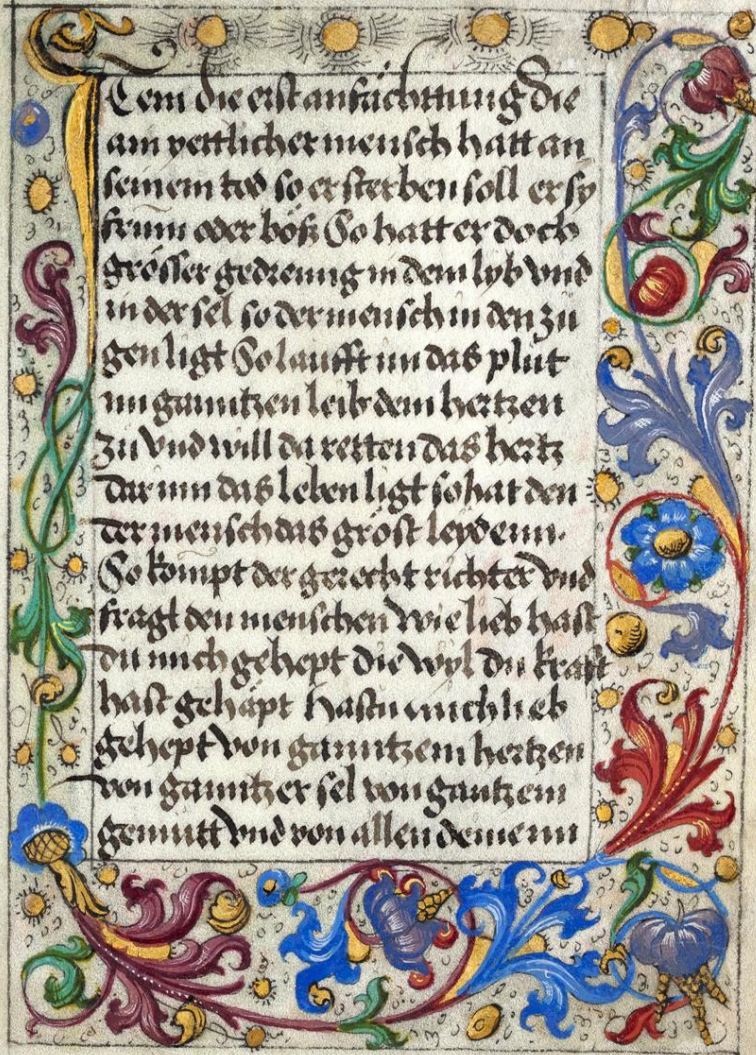 Item die erst anfächttung die
ain yettlicher mensch hatt an
seinem tod so er sterben soll er sy
frum oder böß So hatt er doch
grösser gedreung in dem lyb vnd
in der sel so der mensch in den zü
gen ligt So laufft im das plüt
im ganntzen leib dem hertzen
zu vnd will da retten das hertz
dar inn das leben ligt so hat den
der mensch das gröst leydenn.
So kompt der gerecht richter vnd
fragt den menschen Wie lieb hast
du mich gehept die wyl du krafft
hast gehapt Hastu mich lieb
gehept von ganntzem hertzen
von ganntzer sel von gantzem
gemütt vnd von allen deinenn